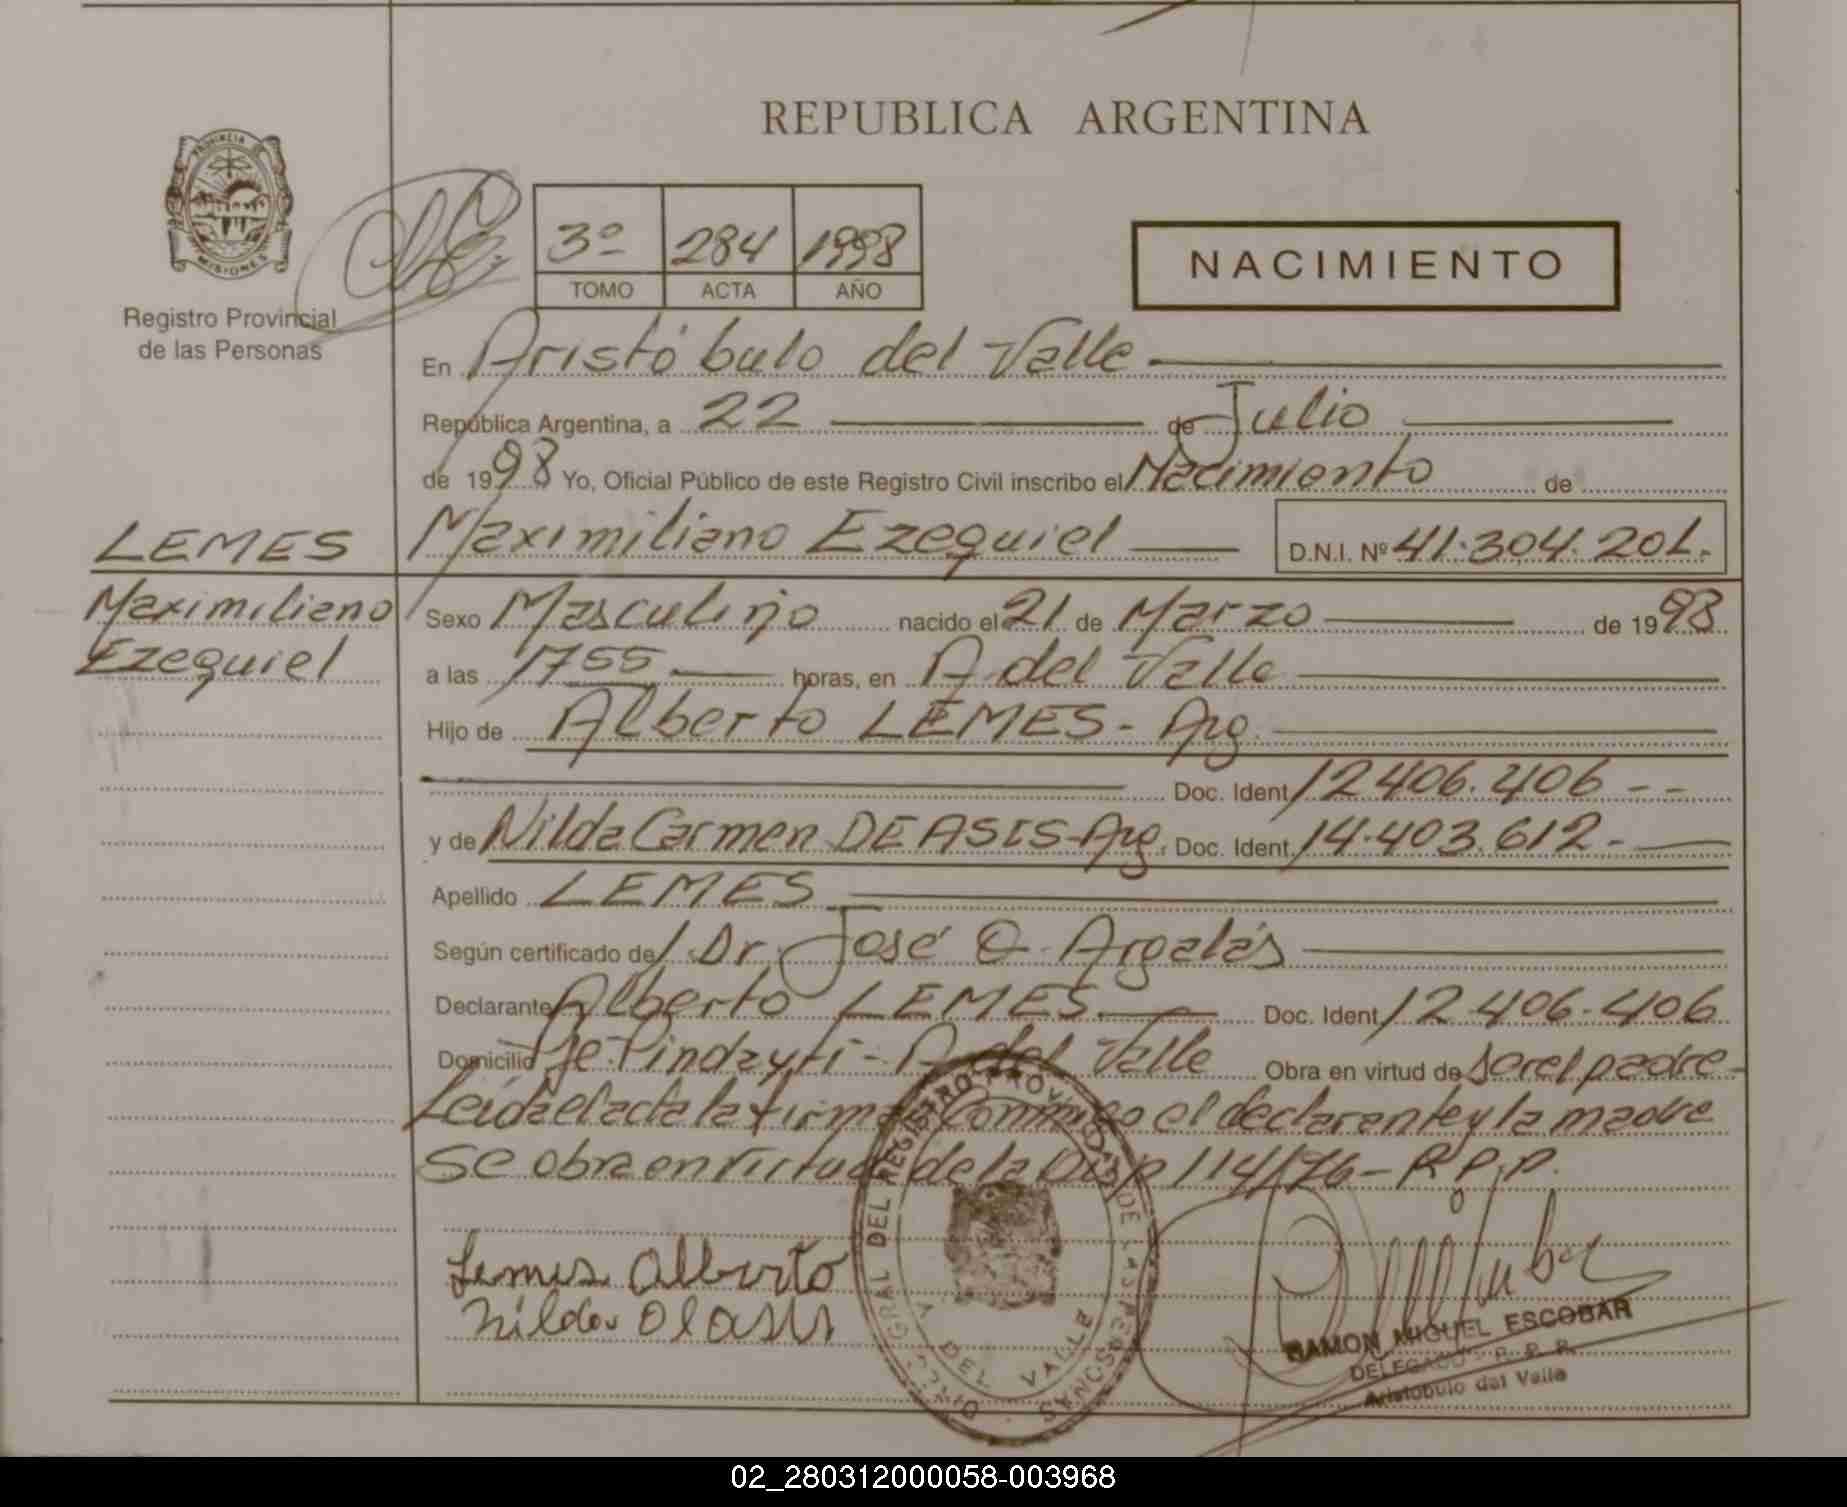 REPUBLICA ARGENTINA
PROVINCIA DE
MISIONES
Registro Provincial
de las Personas
3º 284 1998
TOMO ACTA AÑO
NACIMIENTO
En Aristóbulo del Valle
República Argentina, a 22 de Julio
de 1998 Yo, Oficial Público de este Registro Civil inscribo el Nacimiento de
LEMES Maximiliano Ezequiel D.N.I. Nº 41.304.201.
Maximiliano Sexo Masculino nacido el 21 de Marzo de 1998
Ezequiel a las 1755 horas, en A. del Valle
Hijo de Alberto LEMES - Arg.
Doc. Ident 12.406.406 --
y de Nilda Carmen DE ASIS - Arg. Doc. Ident. 14.403.612.-
Apellido LEMES
Según certificado de Dr. José O. Argalás
Declarante Alberto LEMES Doc. Ident 12.406.406
Domicilio Pje. Pindaytí - A. del Valle Obra en virtud de ser el padre -
Leída el acta la firma conmigo el declarante y la madre
Se obra en virtud de la Disp 114/76 - R.P.P.
Lemes Alberto
Nilda
REGISTRO PROVINCIAL DE LAS PERSONAS
A. DEL VALLE
RAMON MIGUEL ESCOBAR
DELEGADO - R. P. P.
Aristóbulo del Valle
02_280312000058-003968